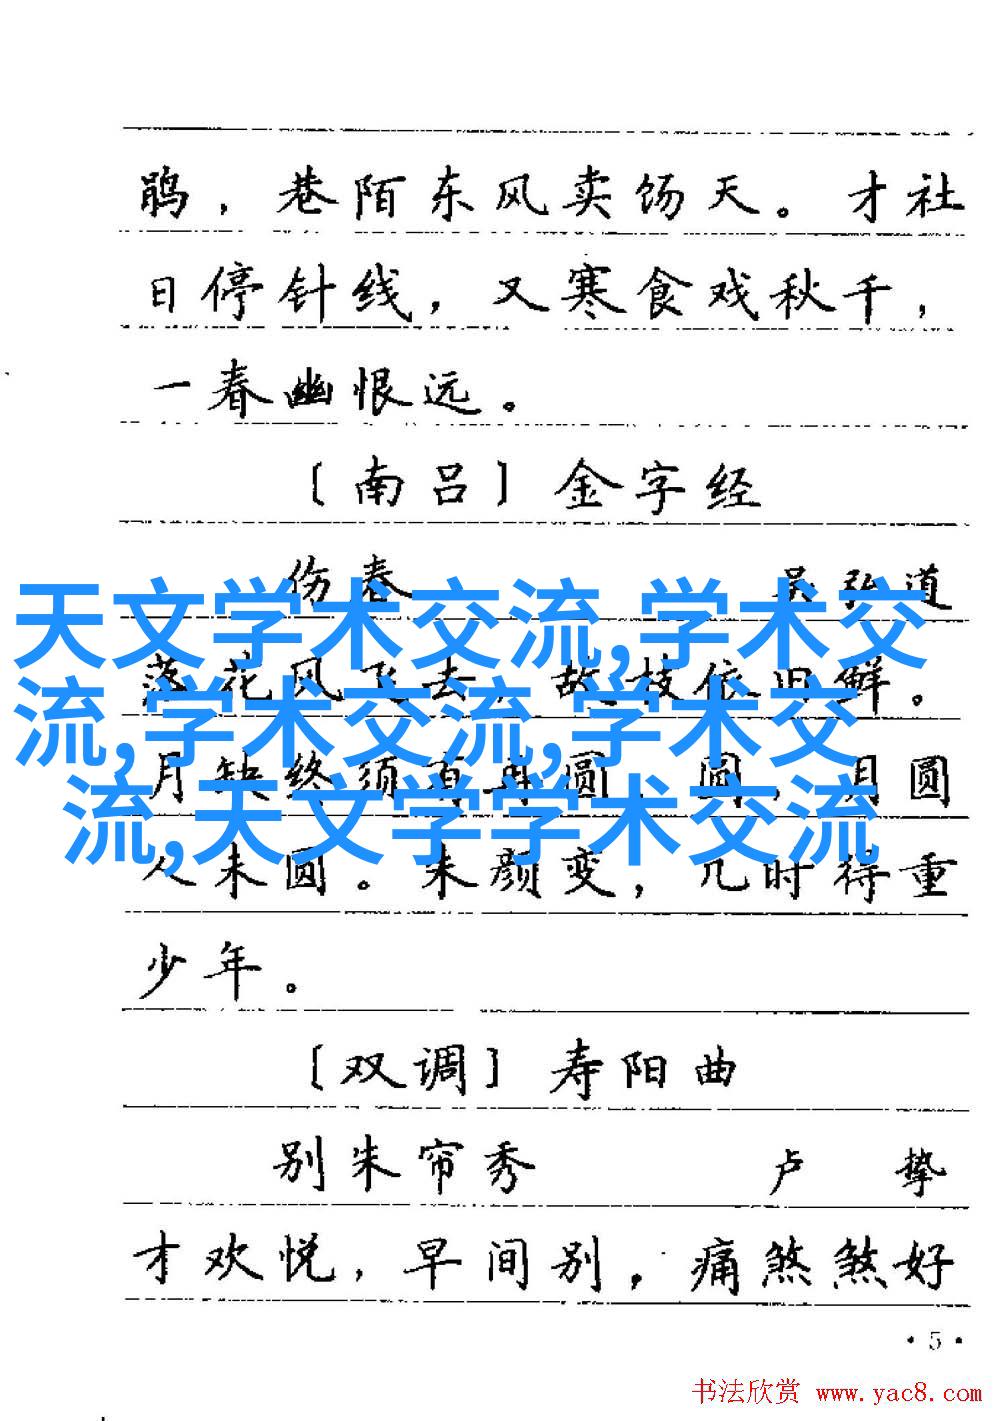 鹃，巷陌东风卖饧天。才社
日停针线，又寒食戏秋千，
一春幽恨远。
〔南吕〕金字经
伤春 吴弘道
落花风飞去，故枝依旧鲜。
月缺终须有再圆，圆，月圆
人未圆。朱颜变，几时得重
少年。
〔双调〕寿阳曲
别朱帘秀 卢挚
才欢悦，早间别，痛煞煞好
天文学术交流,学术交
流,学术交流,学术交
流,天文学学术交流
·5·
书法欣赏 www.yac8.com